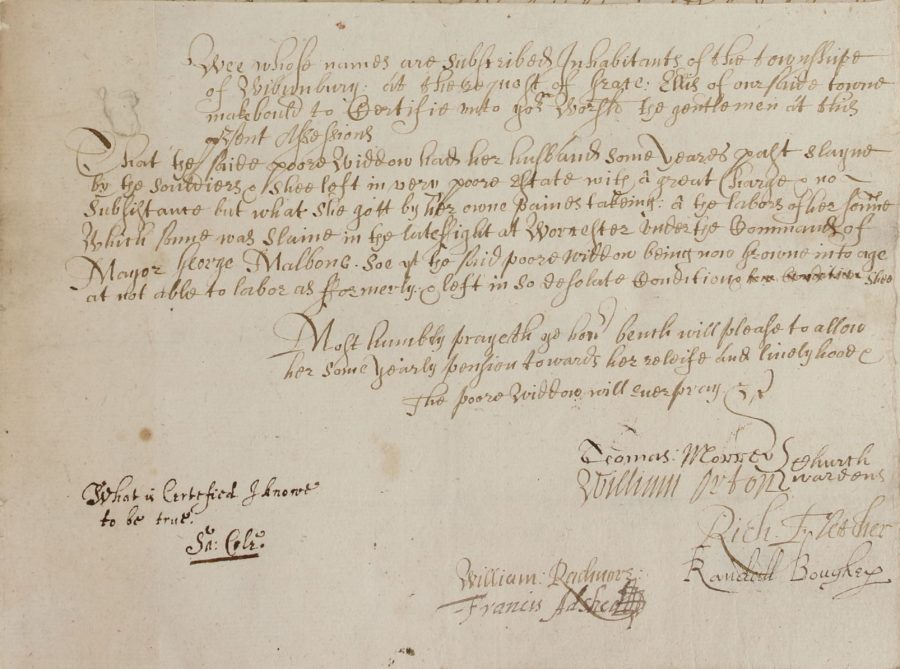 Wee whose names are Subscribed Inhabitants of the towneshipe
of Wibunbury: at the request of Grace: Ellis of our saide towne
make bould to Certifie unto yor Worsh the gentlemen at this
p'sent Assessions
That the saide poore Widdow had her husband some yeares past slayne
by the souldiers & shee left in very poore estate with a great Charge & no
Subsistance but what she gott by her owne paines takeing: & the labors of her sonne
Which sonne was slaine in the late fight at Worcester under the Command of
Mayor George Malbone. Soe yt the said poore widdow being now growne into age
at not able to labor as fformerly: & left in so desolate Condition shee
Most humbly prayeth ye honr bench will please to allow
her some yearly pension towards her releife and livelyhood &
The poore Widdow will ever pray &c
Thomas: Morrey Church
William Orton wardens
What is Certefied I knowe
to be true.
Sa: Cole.
Rich: Fletcher
William: Radmore: Randull Boughey
Francis Adshed